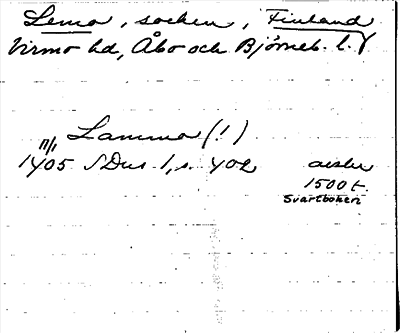 Lemo, socken, Finland
Virmo hd, Åbo och Björneb. l.
Lamma (!)
11/1
1405 SDns 1, s. 402 avskr
1500 t.
Svartboken